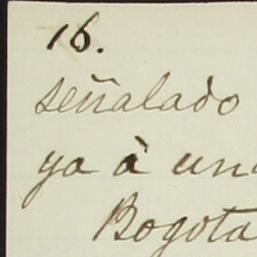 16.
señalado
ya à un
Bogota